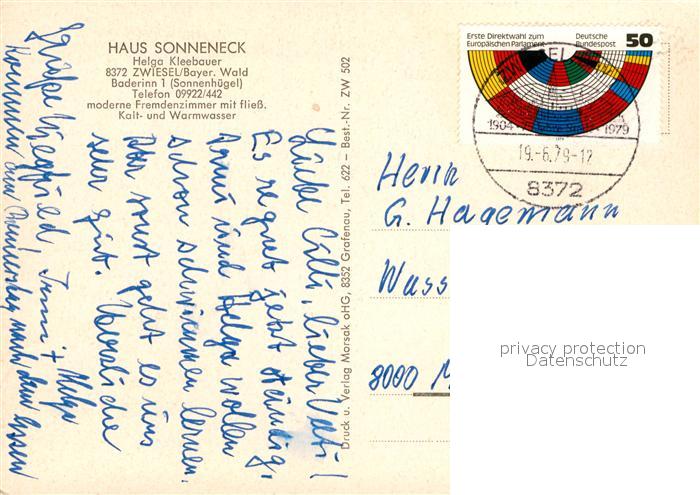 HAUS SONNENECK
Helga Kleebauer
8372 ZWIESEL/Bayer. Wald
Baderinn 1 (Sonnenhügel)
Telefon 09922/442
moderne Fremdenzimmer mit fließ.
Kalt- und Warmwasser
Erste Direktwahl zum
Europäischen Parlament
Deutsche
Bundespost
50
1904
1979
19.-6.79-12
8372
Herrn
G. Hagemann
Wass
8000 M
privacy protection
Datenschutz
Druck u. Verlag Morsak oHG, 8352 Grafenau, Tel. 622 – Best.-Nr. ZW 502
Liebe Cilli, lieber Vati!
Es regnet jetzt ständig,
und Helga wollen
schon schwimmen lernen.
sonst geht es uns
sehr gut. Herzliche
Grüße Siegfried + Helga
Kommen am Donnerstag nach dem Essen